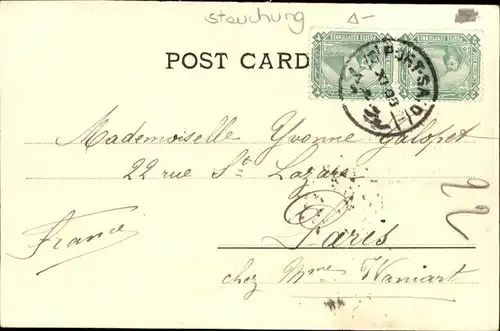 Stauchung
POST CARD
PORT-SAID
XI 03
Mademoiselle Yvonne Galopet
22 rue St Lazare
Paris
France
22
chez Mme Waniart